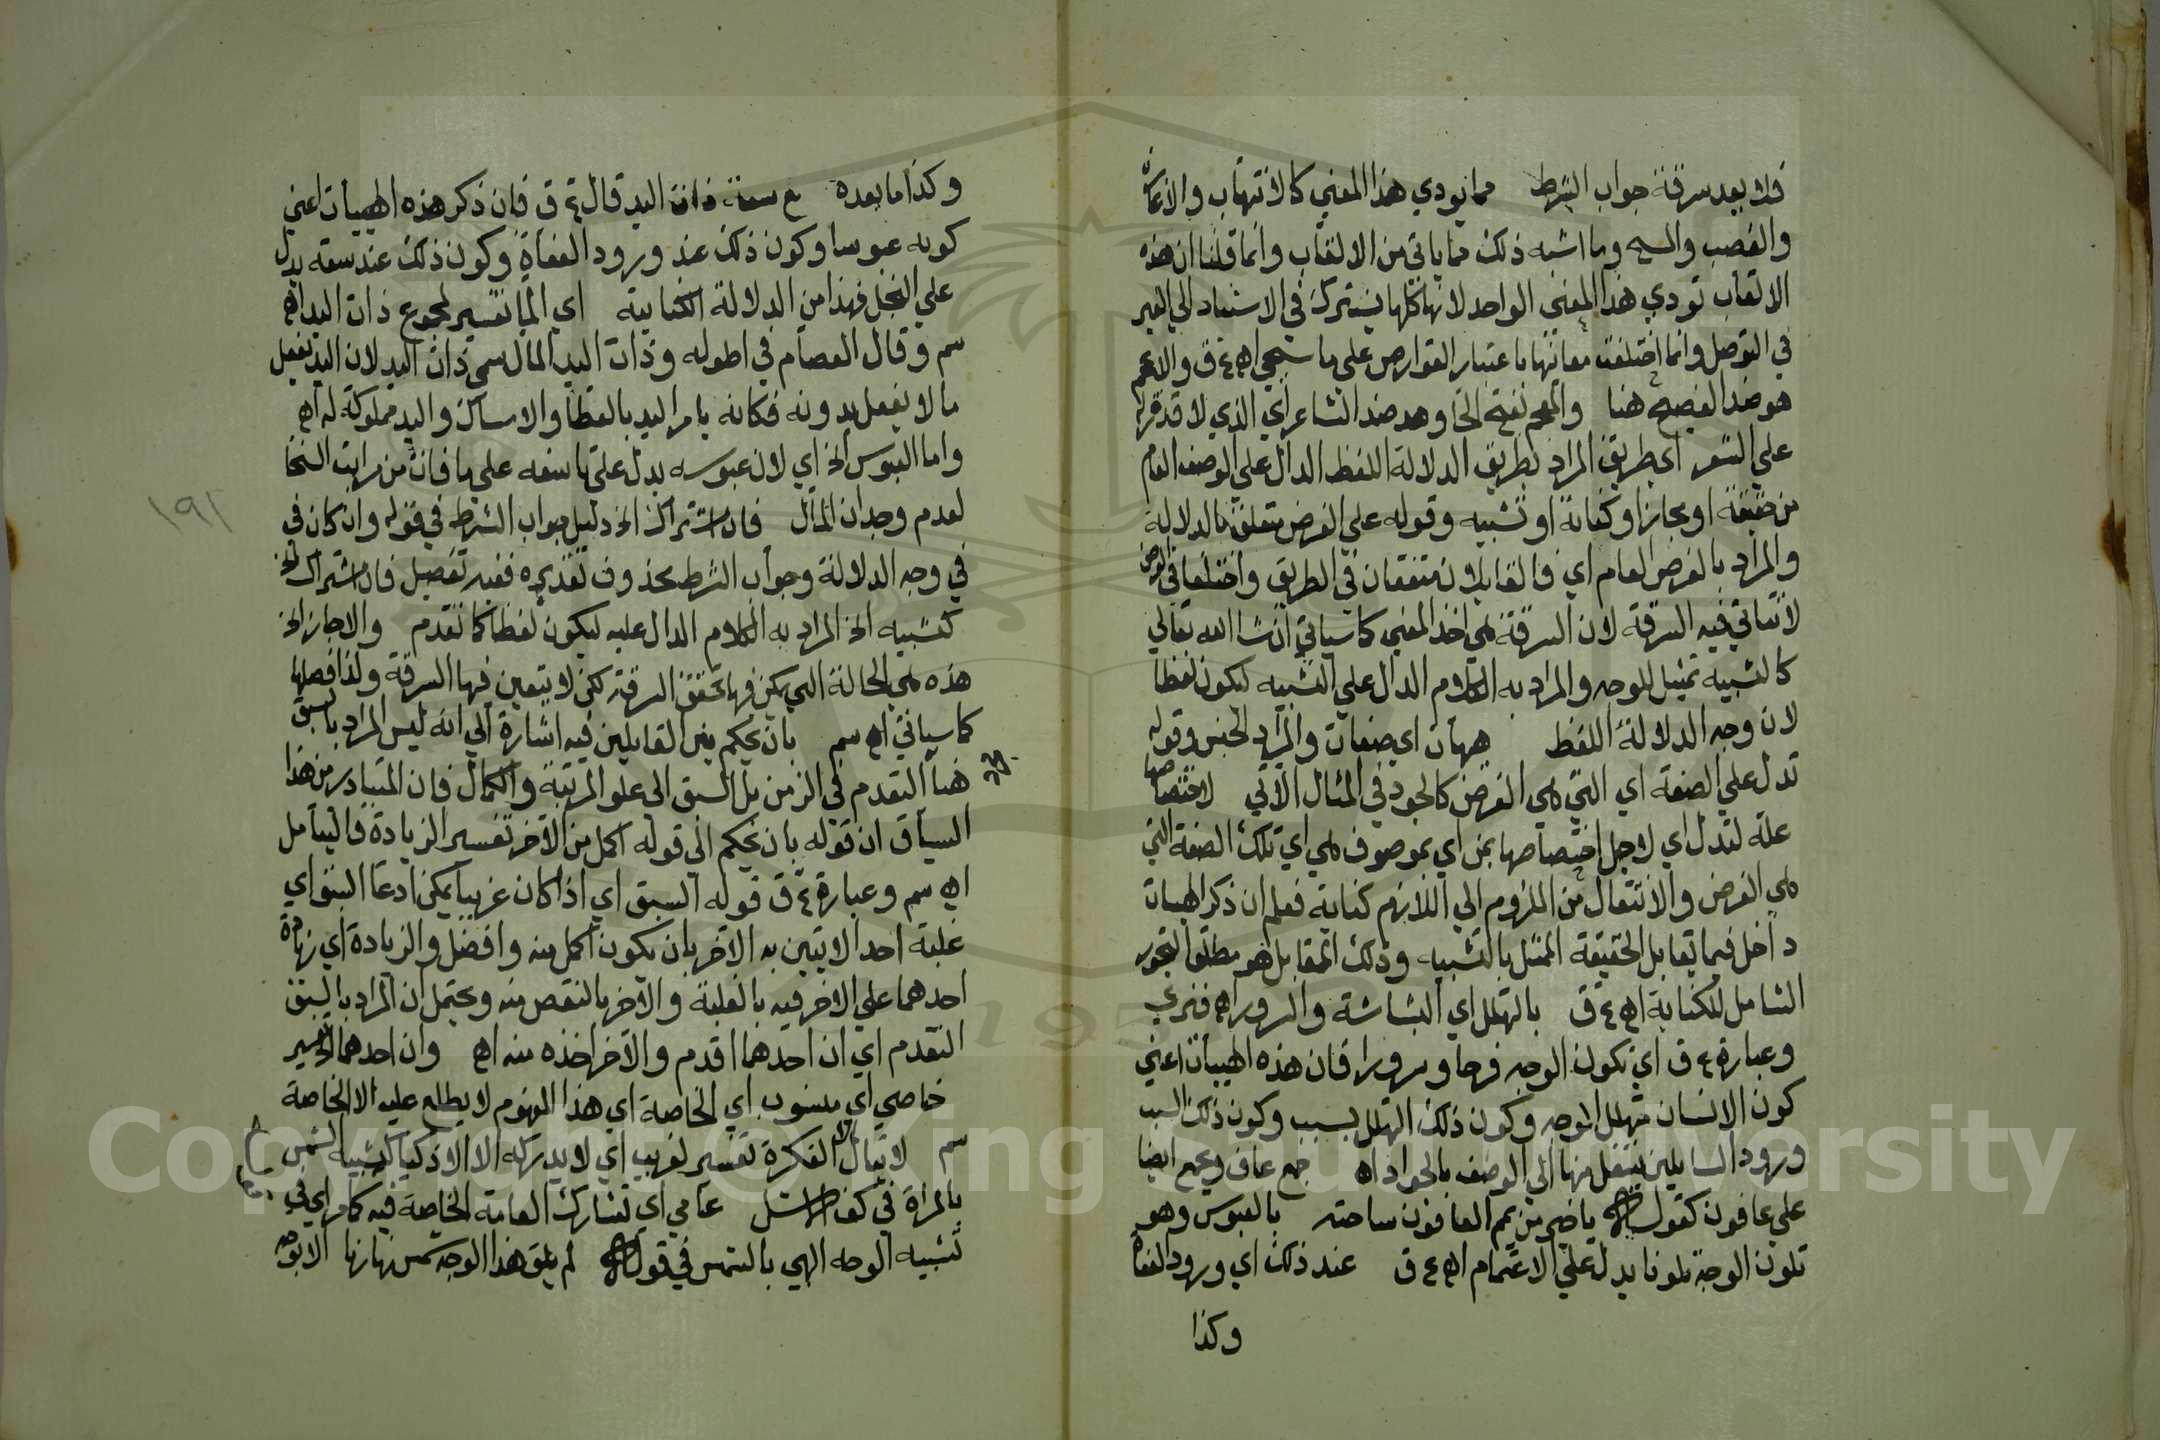 فلا يعد سرقة جواب الشرط مما يودي هذا المعني كالانتهاب والاغارة
والغصب والمسخ وما اشبه ذلك مما ياتي من الالقاب وانما قلنا ان هذه
الالقاب تودي هذا المعني الواحد لانها كلها يشترك في الاستناد الي الغير
في التوصل وانما اختلفت معانيها باعتبار العوارض علي ما سيجي اه ع ق والاعجم
هو ضد الفصيح هنا والمفحم بفتح الحا وهو ضد الشاعر اي الذي لا قدرة له
علي الشعر اي طريق المراد بطريق الدلالة اللفظ الدال علي الوصف العام
من حقيقة او مجاز او كناية او تشبيه وقوله علي الغرض متعلق بالدلالة
والمراد بالغرض العام اي فالقايلان متفقان في الطريق واختلفا في الغرض
لا تتاتي فيه السرقة لان السرقة هي اخذ المعني كما سياتي ان شا الله تعالي
كالتشبيه تمثيل للوجه والمراد به الكلام الدال علي التشبيه ليكون لفظا
لان وجه الدلالة اللفظ هيئات اي صفات والمراد الجنس وقوله
تدل علي الصفة اي التي هي الغرض كالجود في المثال الاتي لاختصاصها
علة لتدل اي لاجل اختصاصها بمن اي بموصوف هي اي تلك الصفة التي
هي الغرض والانتقال من الملزوم الي اللازم كناية فعلم ان ذكر الهيات
داخل فيما يقابل الحقيقة الممثل بالتشبيه وذلك المقابل هو مطلق التجوز
الشامل للكناية اه ع ق بالتهلل اي البشاشة والسرور اه فنري
وعبارة ع ق اي تكون الوجه فرحا وسرورا فان هذه الهيئات اعني
كون الانسان متهلل الوجه وكون ذلك التهلل بسبب وكون ذلك السبب
ورود السايلين ينتقل منها الي الوصف بالجواد اه جمع عاف ويجمع ايضا
علي عافون كقول يا خير من يمم العافون ساحته بالعبوس وهو
تلون الوجه تلونا يدل علي الاغتمام اه ع ق عند ذلك اي ورود العفاة
وكذا
وكذا ما بعده مع سعة ذات اليد قال ع ق فان ذكر هذه الهيئات اعني
كونه عبوسا وكون ذلك عند ورود العفاة وكون ذلك عند سعته يدل
علي البخل فهذا من الدلالة الكنايية اي المال تفسير لمجموع ذات اليد اه
سم وقال العصام في اطوله وذات اليد المال سمي ذات اليد لان اليد تفعل
ما لا يفعل بدونه فكانه يامر اليد بالعطا والامساك واليد مملوكة له اه
واما العبوس الخ اي لان عبوسه يدل علي تاسفه علي ما فات من مراتب السخا
لعدم وجدان المال فان اشتراك الخ دليل جواب الشرط في قوله وان كان في
في وجه الدلالة وجواب الشرط محذوف تقديره ففيه تفصيل فان اشتراك الخ
كتشبيه الخ المراد به الكلام الدال عليه ليكون لفظا كما تقدم والا جاز الخ
هذه هي الحالة التي يمكن فيها تحقق السرقة لكن لا يتعين فيها السرقة ولذا فصلها
كما سياتي اه سم بان يحكم بين القايلين فيه اشارة الي انه ليس المراد بالسبق
هنا التقدم في الزمن بل السبق الي علو المرتبة والكمال فان المتبادر من هذا
السياق ان قوله بان يحكم الي قوله اكمل من الاخر تفسير الزيادة فاليتامل
اه سم وعبارة ع ق قوله السبق اي اذا كان غريبا يمكن ادعا السبق اي
غلبة احد الاتيين به الاخر بان يكون اكمل منه وافضل والزيادة اي زيادة
احدهما علي الاخر فيه بالغلبة والاخر بالنقص منه ويحتمل ان المراد بالسبق
التقدم اي ان احدهما اقدم والاخر اخذه منه اه وان احدهما الخ تفسير
خاصي اي منسوب اي الخاصة اي هذا المفهوم لا يطلع عليه الا الخاصة
سم لا ينال الا بالفكرة تفسير لغريب اي لا يدركه الا الاذكيا كتشبيه الشمس
بالمراة في كف الاشل عامي اي تشارك العامة الخاصة فيه كما مر اي في
تشبيه الوجه البهي بالشمس في قول لم يلق هذا الوجه شمس نهارنا الا بوجه
١٩١